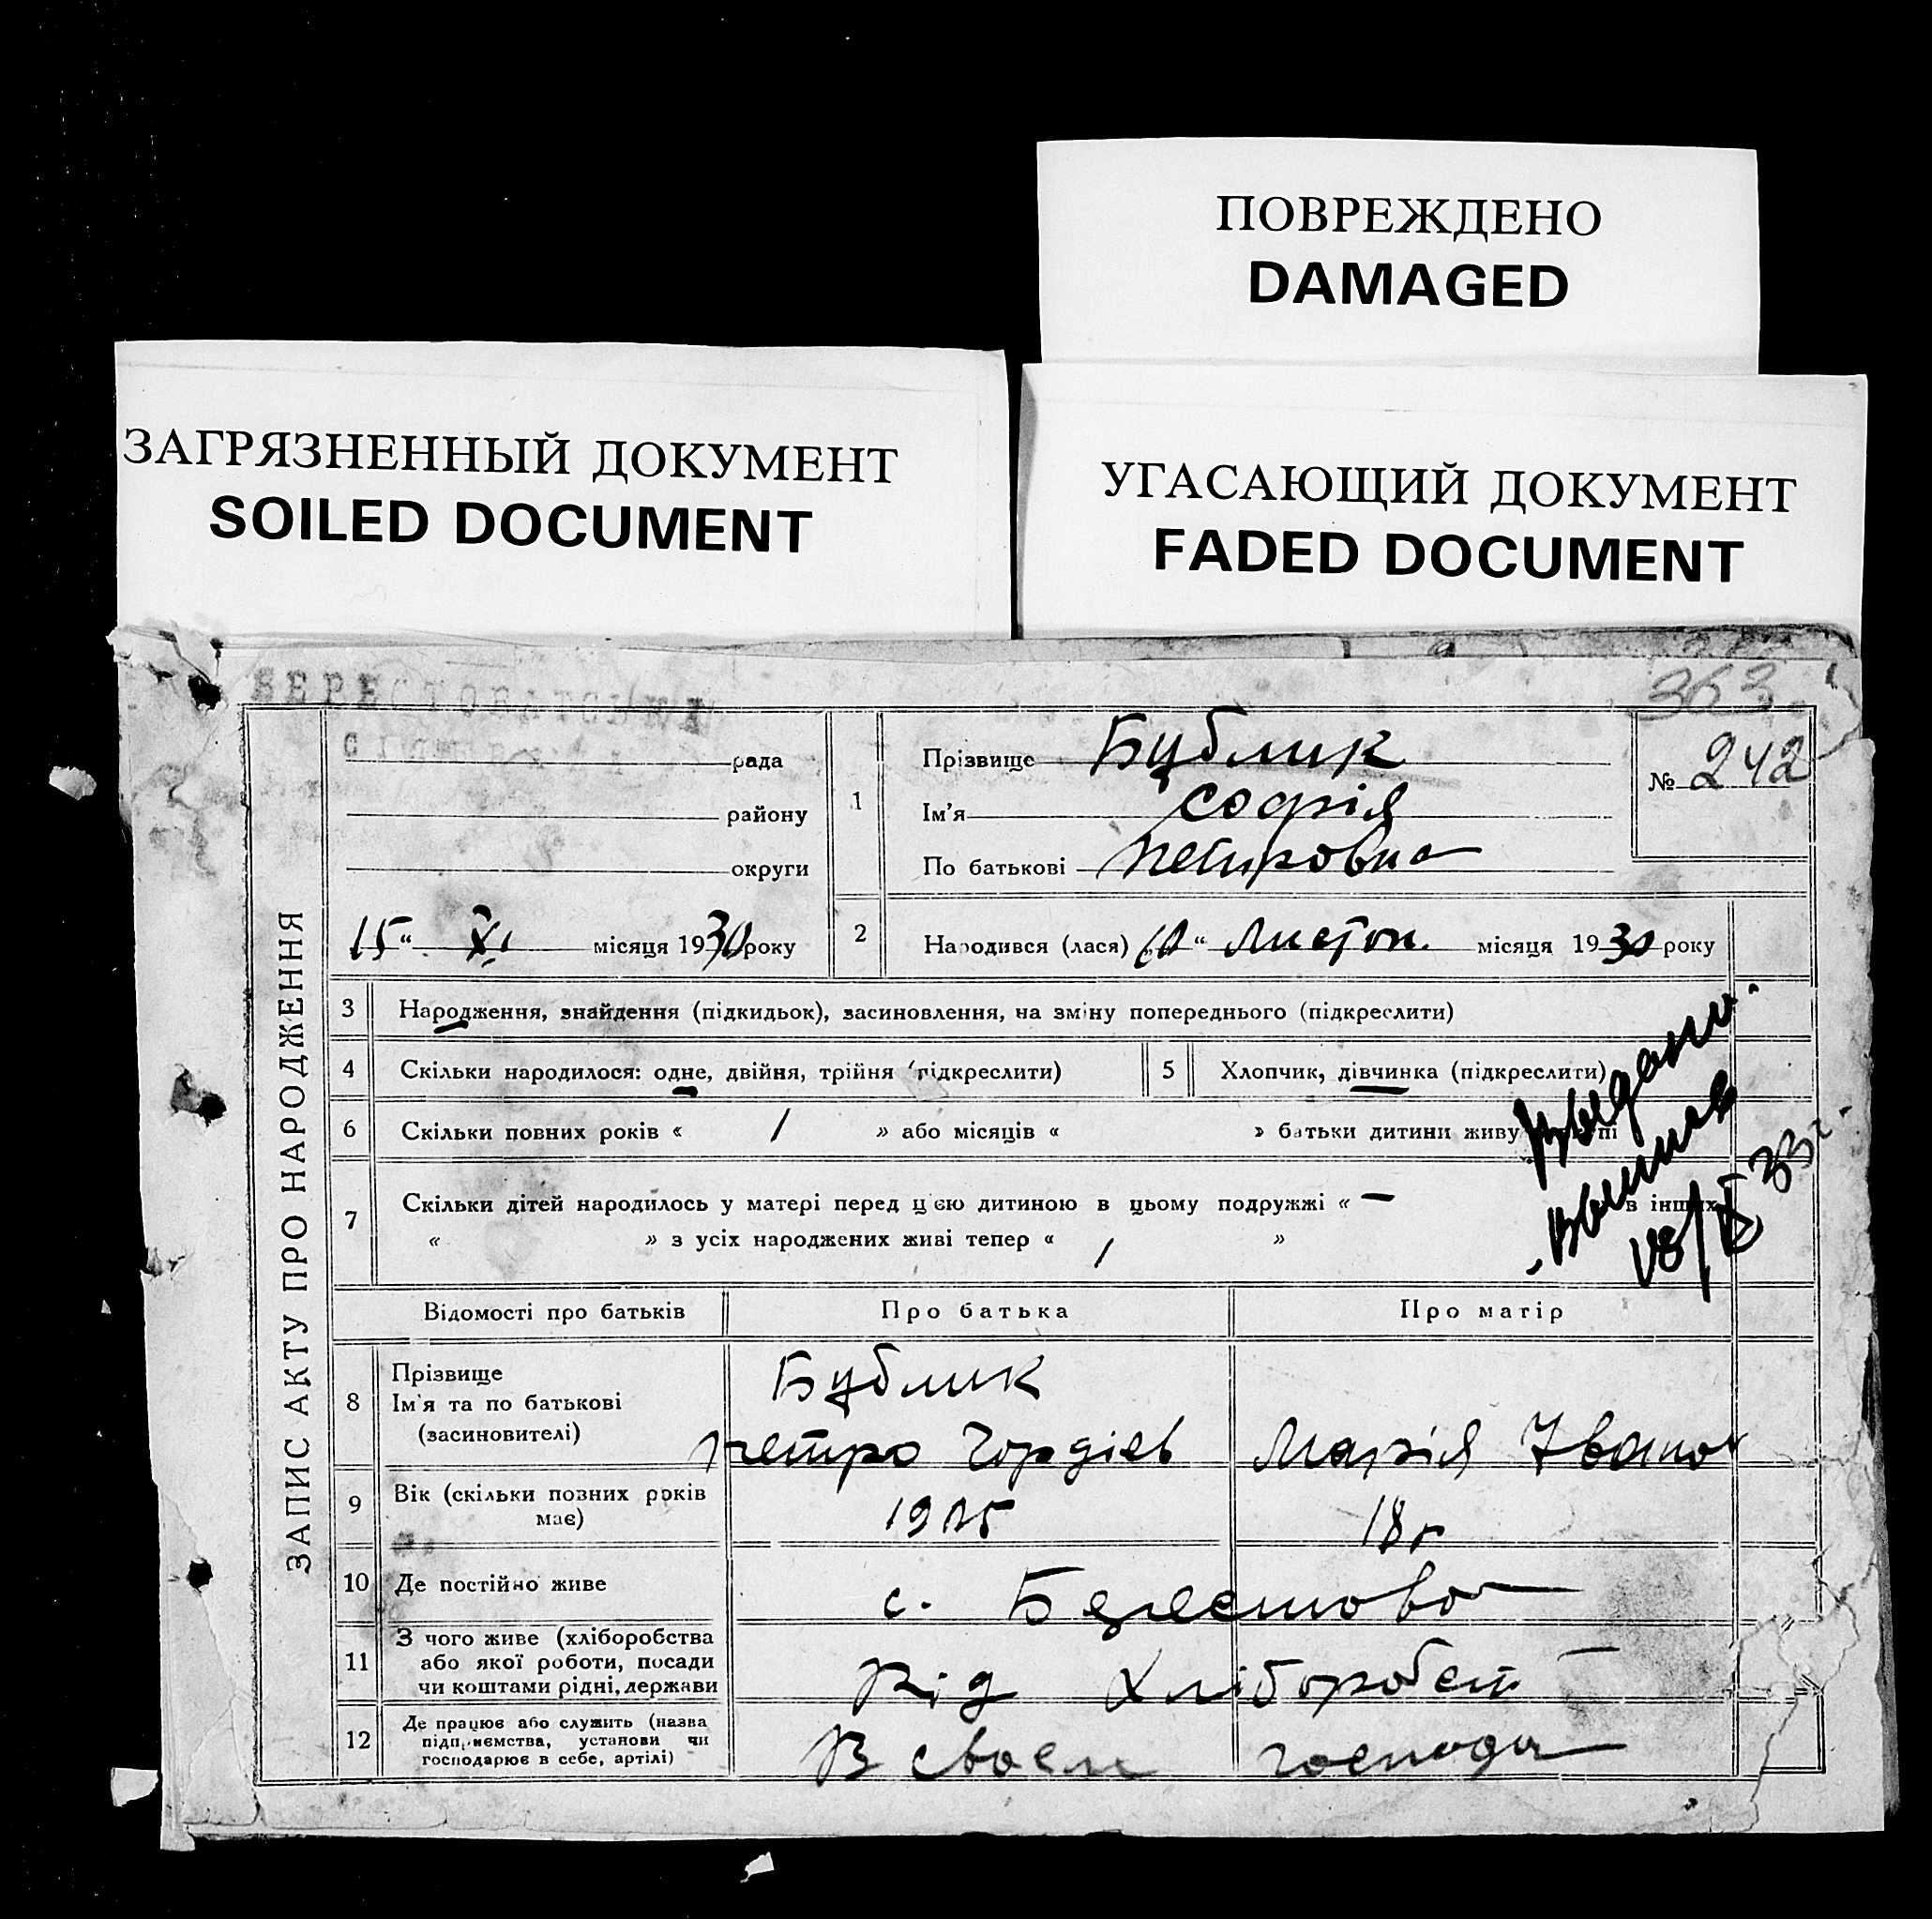 ПОВРЕЖДЕНО
DAMAGED
ЗАГРЯЗНЕННЫЙ ДОКУМЕНТ
SOILED DOCUMENT
УГАСАЮЩИЙ ДОКУМЕНТ
FADED DOCUMENT
363
ЗАПИС АКТУ ПРО НАРОДЖЕННЯ
рада
району
округи
15 “ XI місяця 1930 року
1
Прізвище Бублик
Ім'я Софія
По батькові Петровна
№ 242
2
Народився (лася) “ Листоп. місяця 1930 року
3 Народження, знайдення (підкидьок), засиновлення, на зміну попереднього (підкреслити)
4 Скільки народилося: одне, двійня, трійня (підкреслити)
5 Хлопчик, дівчинка (підкреслити)
6 Скільки повних років « / » або місяців « » батьки дитини живу
7 Скільки дітей народилось у матері перед цією дитиною в цьому подружжі « — в інших
« » з усіх народжених живі тепер « / »
33г.
Відомості про батьків Про батька Про матір
8 Прізвище
Ім'я та по батькові
(засиновителі)
Бублик
Петро Гордієв Марія Іванов
9 Вік (скільки повних років
має)
18 г
10 Де постійно живе с. Берестова
11 З чого живе (хліборобства
або якої роботи, посади
чи коштами рідні, держави
Від Хліборобст
12 Де працює або служить (назва
підприємства, установи чи
господарює в себе, артілі)
В своем господа